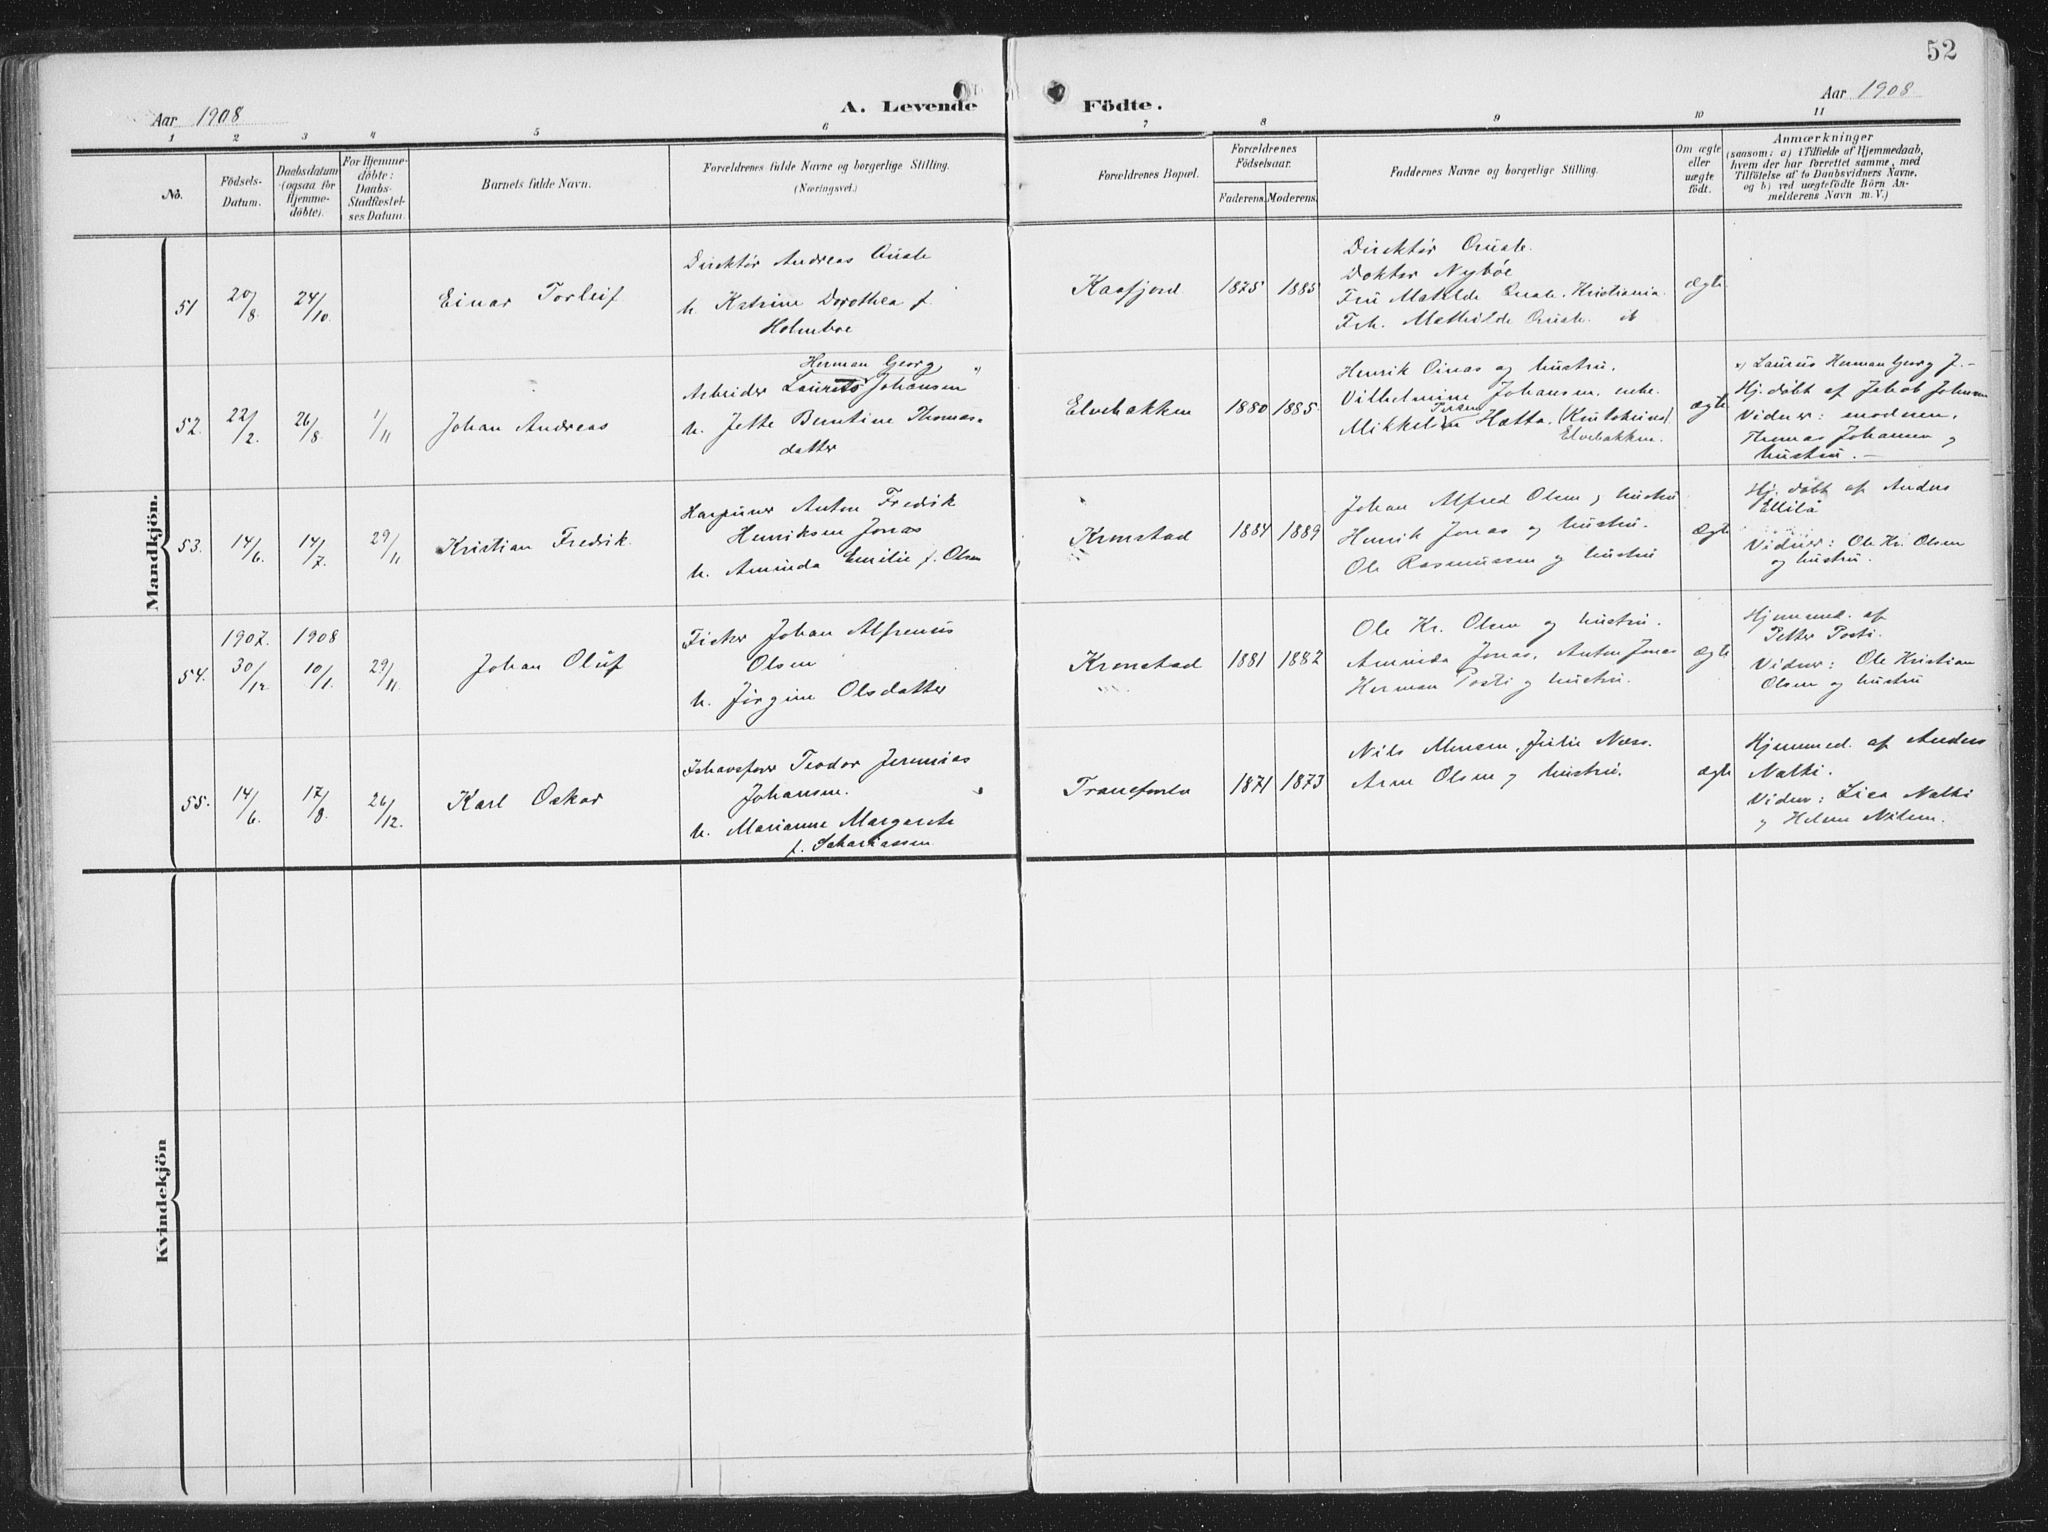 52
Aar 1908
A. Levende Födte.
Aar 1908
1 2 3 4 5 6 7 8 9 10 11
No.
Födsels-
Datum.
Daabsdatum
(ogsaa for
Hjemme-
döbte).
For Hjemme-
döbte:
Daabs-
Stadfæstel-
ses Datum.
Barnets fulde Navn.
Forældrenes fulde Navne og borgerlige Stilling.
(Næringsvei.)
Forældrenes Bopæl.
Forældrenes
Födselsaar.
Faderens. Moderens.
Faddernes Navne og borgerlige Stilling.
Om ægte
eller
uægte
födt.
Anmærkninger
(saasom: a) i Tilfælde af Hjemmedaab,
hvem der har forrettet samme, med
Tilföielse af to Daabsvidners Navne,
og b) ved uægtefödte Börn An-
melderens Navn m. V.)
Mandkjön.
51 20/8. 24/10.
Einar Torleif
Direktør Andreas Quale
h. Katrine Dorothea f.
Holmboe
Kaafjord 1875 1885
Direktør Quale.
Doktor Nyböe
Fru Matilde Quale, Kristiania.
Frk. Mathilde Quale. it
ægte
52. 22/2. 26/8. 1/11
Johan Andreas
Herman Georg
Arbeider Laurits Johansen x)
h. Jette Berntine Thomas-
datter
Elvebakken 1880 1885.
Henrik Oinas og hustru.
Vilhelmine Johansen, enke.
Mikkelsen Hætta, (Kautokeino)
Elvebakken.
ægte
x) Laurus Herman Georg J. -
Hj. døbt af Jakob Johnsen
Vidner: moderen,
Thomas Johansen og
hustru. -
53. 14/6. 14/7. 29/11
Kristian Fredrik.
Harpuner Anton Fredrik
Henriksen Jonas
h. Aminda Emilie f. Olsen
Kronstad 1884 1889
Johan Alfred Olsen og hustru
Henrik Jonas og hustru.
Ole Rasmussen og hustru
ægte
Hj. døbt af Anders
Ellilä
Vidner: Ole Kr. Olsen
og hustru.
1907. 1908
54. 30/12. 10/1. 29/11.
Johan Oluf
Fisker Johan Alfrenius
Olsen
h. Jørgine Olsdatter
Kronstad 1881 1882
Ole Kr. Olsen og hustru.
Aminda Jonas, Anton Jonas
Herman Posti og hustru.
ægte
Hjemmed. af
Petter Posti.
Vidner: Ole Kristian
Olsen og hustru
55. 14/6. 17/8. 26/12.
Karl Oskar
Ishavsfarer Teodor Jeremias
Johansen.
h. Marianne Margrete
f. Sakariassen
Tranefoten 1871 1873
Nils Monsen, Julie Næss.
Arne Olsen og hustru.
ægte
Hjemmed. af Anders
Nalki.
Vidner: Lisa Nalki
og Helene Nilsen.
Kvindekjön